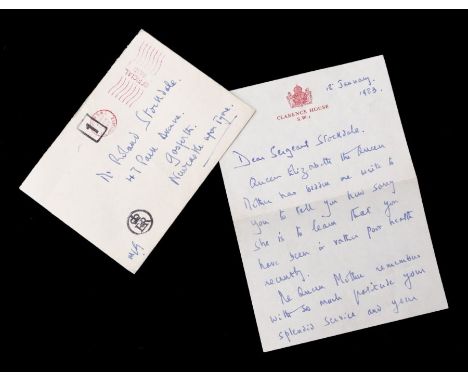 OFFICIAL
1
Mr Roland Stockdale.
47 Park Avenue.
Gosforth.
Newcastle upon Tyne.
CLARENCE HOUSE
S.W.1
January.
1983.
Dear Sergeant Stockdale.
Queen Elizabeth the Queen
Mother has bidden me write to
you to tell you how sorry
she is to learn that you
have been in rather poor health
recently.
The Queen Mother remembers
with so much gratitude your
splendid service and your